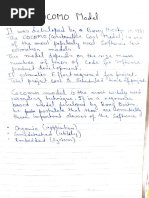 COCOMO Model
It was developed by a Barry Boehm in 1981
The COCOMO (Constructive Cost Model) is one
of the most popularly used Software cost
estimation models.
The model depends on the size means
number of lines of Code for Software
product development.
It estimates Effort required for project,
total project cost & Scheduled time
Cocomo model is the most widely used
estimating technique. It is a regression
based model developed by Barry Boehm
he postulate that there are essentially
three important classes of the Software
Organic (application)
Semidetached (utility)
Embedded (system)